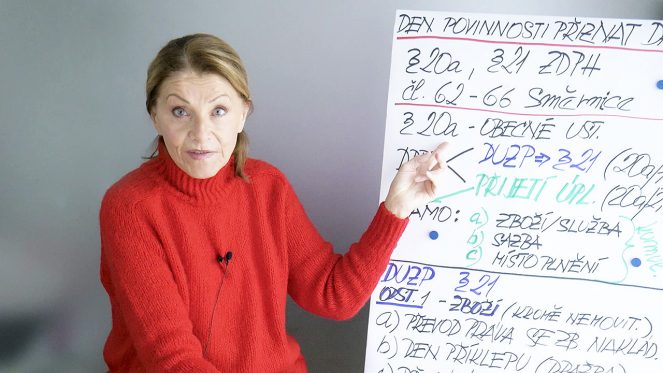 DEN POVINNOSTI PŘIZNAT
§ 20a, § 21 ZDPH
čl. 62 - 66 Směrnica
§ 20a - OBECNÉ UST.
DUZP ⇒ § 21 (20a/
PŘIJETÍ ÚPL. (20a/
a) ZBOŽÍ/SLUŽBA
b) SAZBA
c) MÍSTO PLNĚNÍ
DUZP § 21
ODST. 1 - ZBOŽÍ (KROMĚ NEMOVIT.)
a) PŘEVOD PRÁVA SE ZB. NAKLÁD.
b) DEN PŘÍKLEPU (DRAŽBA)